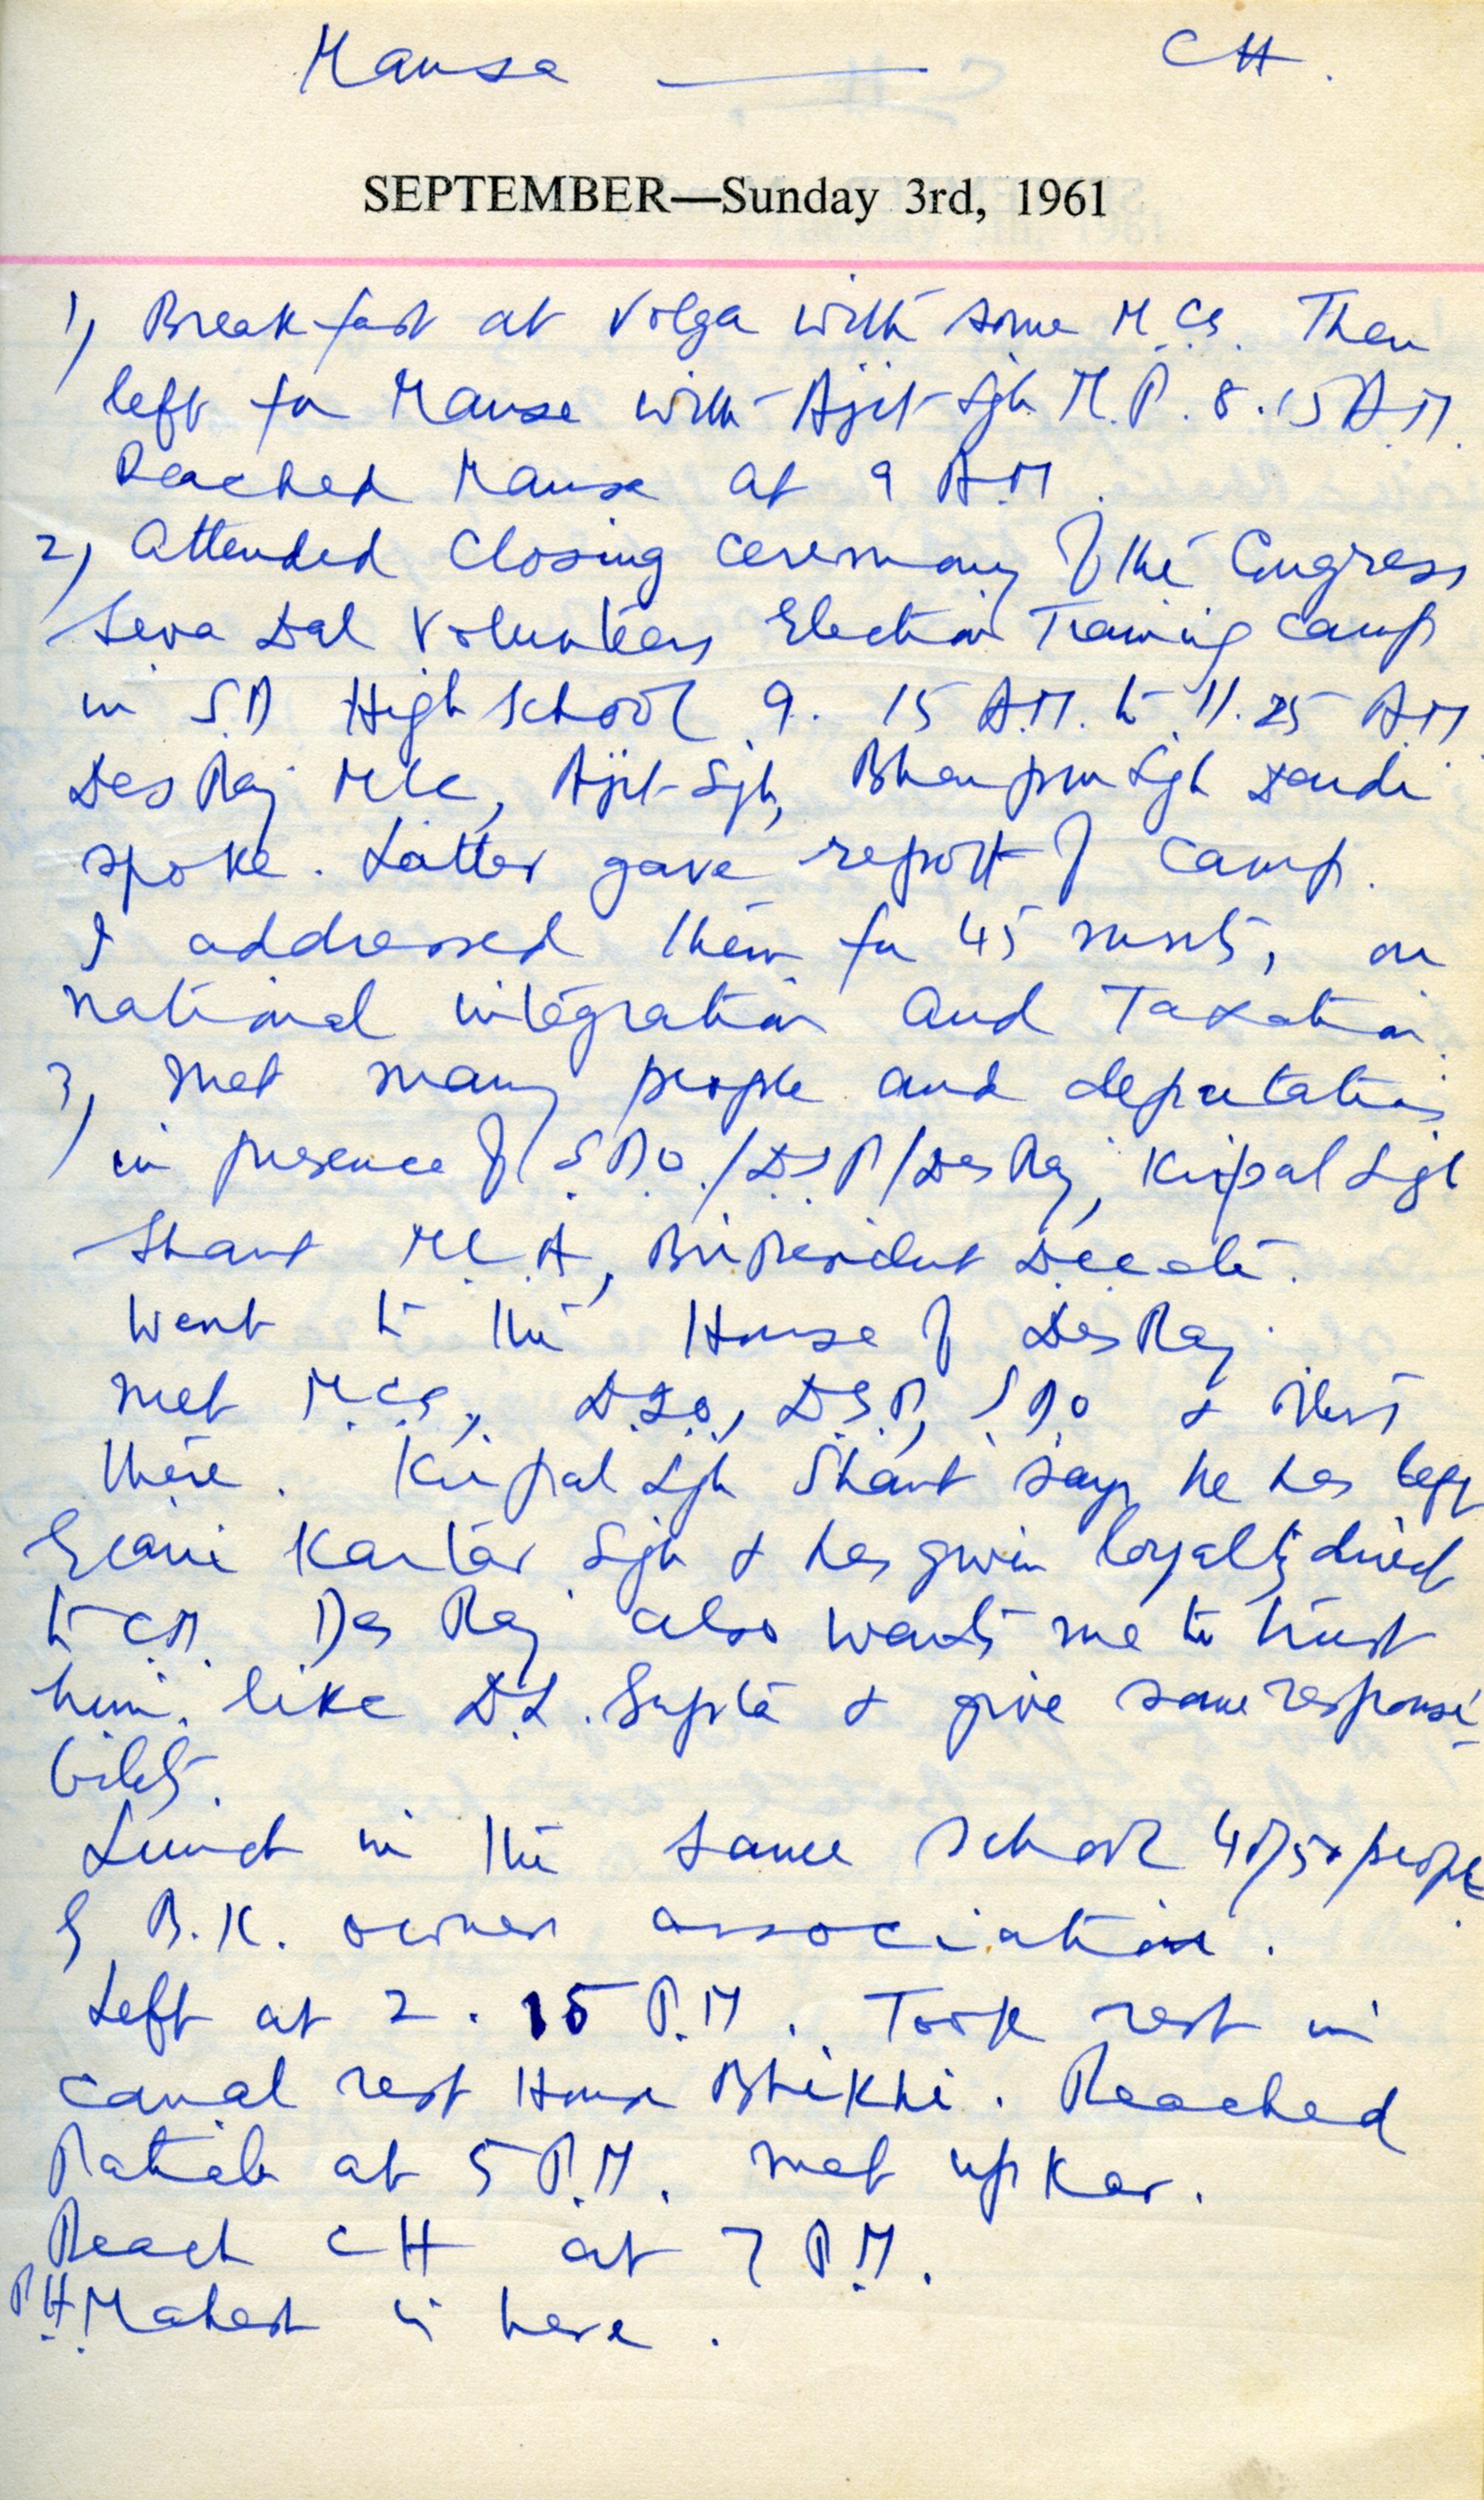 Mansa —— CH.
SEPTEMBER—Sunday 3rd, 1961
1) Breakfast at Volga with some M.Cs. Then
left for Mansa with Ajit Sgh M.P. 8.15 A.M.
Reached Mansa at 9 A.M.
2) Attended Closing ceremony of the Congress
Seva Dal Volunteers Election Training Camp
in S.D High School 9.15 A.M. to 11.25 A.M
Des Raj MLC, Ajit Sgh, Sgh
spoke. Latter gave report of camp.
I addressed them for 45 mnts, on
national integration and Taxation.
3) Met many people and deputations
in presence of S.D.O./D.S.P/Des Raj, Kirpal Sgh
Shant M.L.A,
Went to the House of Des Raj.
Met M.Cs, D.S.P, SDO & others
there. Kirpal Sgh Shant says he has left
Giani Kartar Sgh & has given loyalty direct
to C.M. Des Raj also wants me to trust
him, like D.L. Gupta & give some responsi-
bility.
Lunch in the same School 40/50 people
of B.K. owner association.
Left at 2.15 P.M. Took rest in
canal rest House Bhikhi. Reached
Patiala at 5 P.M. Met upkar.
Reach CH at 7 P.M.
Mahesh is here.